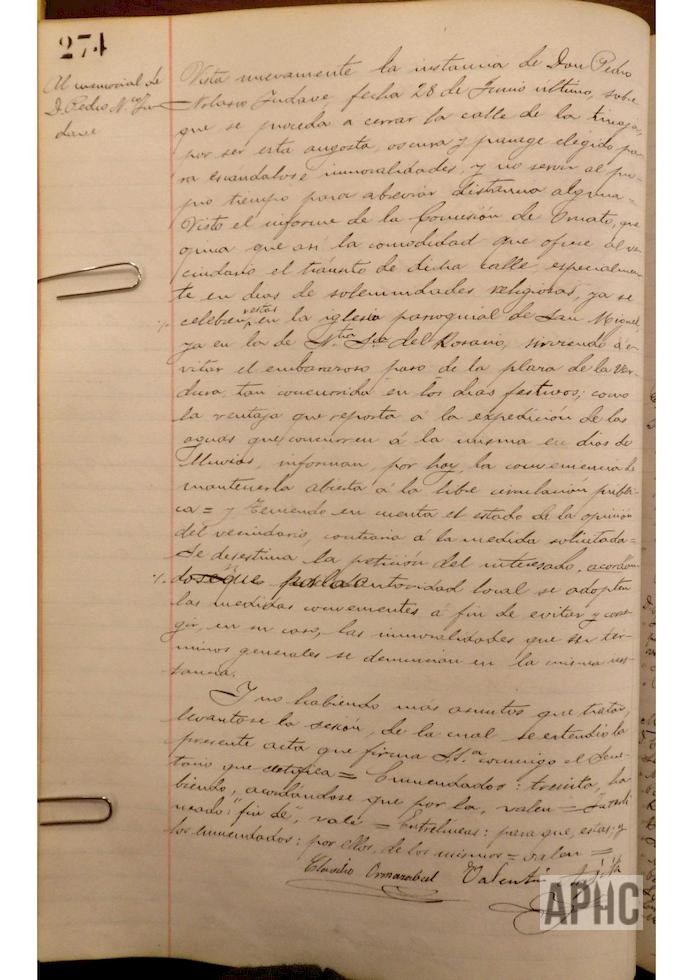 274
Al memorial de
D. Pedro N.co Ju-
dave
Vista nuevamente la instancia de Don Pedro
Nolasco Judave, fecha 28 de Junio último, sobre
que se proceda a cerrar la calle de la Tinaja,
por ser esta angosta, oscura y parage elegido pa-
ra escandalos e inmoralidades, y no servir al pro-
pio tiempo para abreviar distancia alguna =
Visto el informe de la Comisión de Ornato, que
opina que asi la comodidad que ofrece al ve-
cindario el tránsito de dicha calle, especialmen-
te en dias de solemnidades religiosas, ya se
celebren estas en la iglesia parroquial de San Miguel,
ya en la de Ntra Sra del Rosario, sirviendo á e-
vitar el embarazoso paso de la plaza de la Ver-
dura, tan concurrida en los dias festivos; como
la ventaja que reporta á la expedición de las
aguas que concurren á la misma en dias de
lluvias, informan, por hoy, la conveniencia de
mantenerla abierta á la libre circulación públi-
ca = y teniendo en cuenta el estado de la opinión
del vecindario, contraria á la medida solicitada =
Se desestima la petición del interesado, acordán-
dose que por la autoridad local se adopten
las medidas convenientes á fin de evitar y corre-
gir, en su caso, las inmoralidades que en tér-
minos generales se denuncian en la misma ins-
tancia.
Y no habiendo mas asuntos que tratar,
levantose la sesión, de la cual se extendió la
presente acta que firma S.S.a conmigo el Secre-
tario que certifica = Enmendados: treinta, ha
biendo, acordándose que por la, valen =
neado: "fin de", vale = Entrelíneas: para que, estas; y
los enmendados: por ellos, de los mismos = valen =
Claudio Ormazabal Valentín
APHC